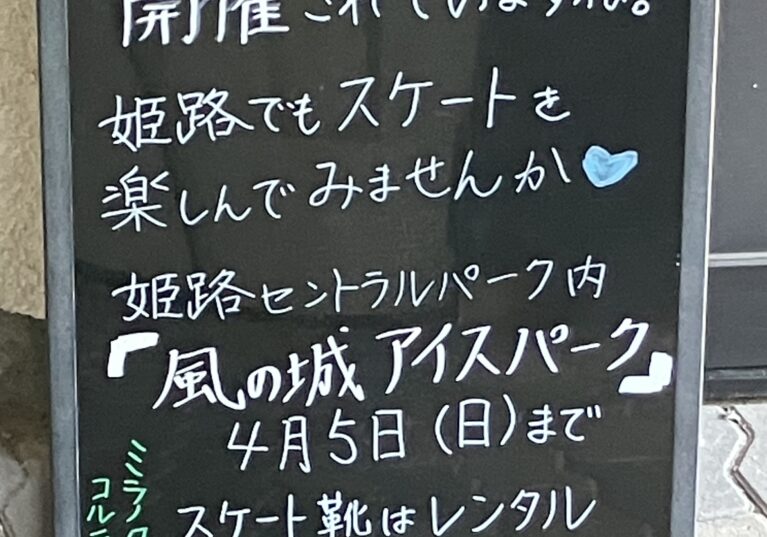 開催されていますね。
姫路でもスケートを
楽しんでみませんか
姫路セントラルパーク内
『風の城アイスパーク』
4月5日(日)まで
スケート靴はレンタル
ミラノ
コルテ